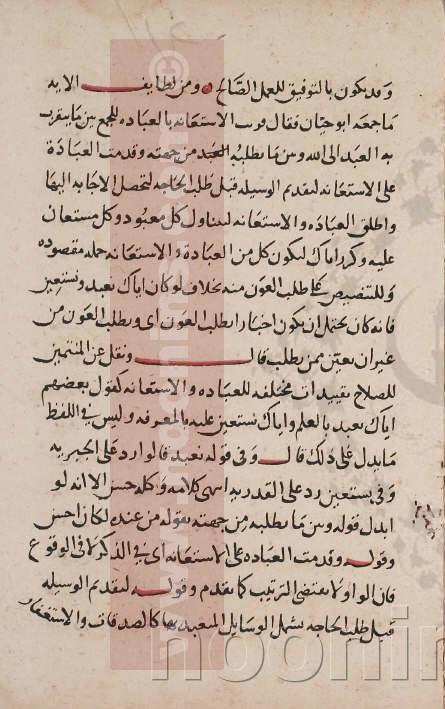 وقد يكون بالتوفيق للعمل الصالح ومن لطايف الايه
ما جمعه ابو حيان فقال قرن الاستعانه بالعباده للجمع بين ما يتقرب
به العبد الى الله وبين ما يطلبه العبد من جهته وقدمت العبادة
على الاستعانه لتقديم الوسيله قبل طلب الحاجه لتحصل الاجابه اليها
واطلق العباده والاستعانه لتناول كل معبود وكل مستعان
عليه وكرر اياك ليكون كل من العبادة والاستعانه جمله مقصوده
وللتنصيص على طلب العون منه بخلاف لو كان اياك نعبد ونستعين
فانه كان يحتمل ان يكون اخبارا بطلب العون اى ونطلب العون من
غير ان يعين ممن يطلب قال ونقل عن المنتمين
للصلاح تقييدات مختلفه للعباده والاستعانه كقول بعضهم
اياك نعبد بالعلم واياك نستعين عليه بالمعرفه وليس في اللفظ
ما يدل على ذلك قال وفى قوله نعبد قالوا رد على الجبريه
وفى نستعين رد على القدريه انتهى كلامه وكله حسن الا انه لو
ابدل قوله وبين ما يطلبه من جهته بقوله من عنده لكان احسن
وقوله وقدمت العباده على الاستعانه اى في الذكر لا فى الوقوع
فان الواو لا يقتضى الترتيب كما تقدم وقوله لتقديم الوسيله
قبل طلب الحاجه يشمل الوسايل المتعبد بها كالصدقات والاستغفار
www.noorlib
noorlin